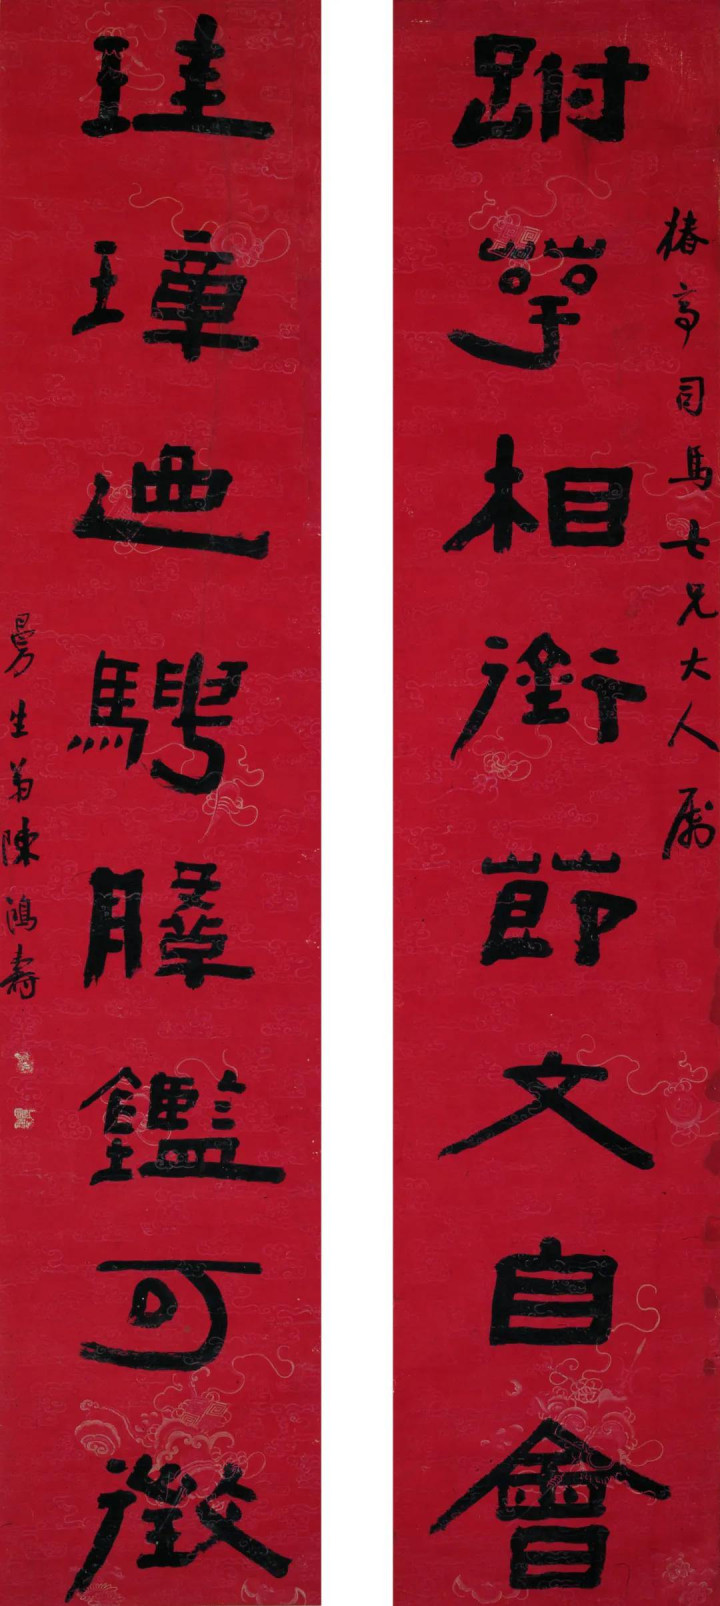 椿亭司馬七兄大人屬
跗萼相銜節文自會
珪璋迺騁鑑可徵
曼生弟陳鴻壽